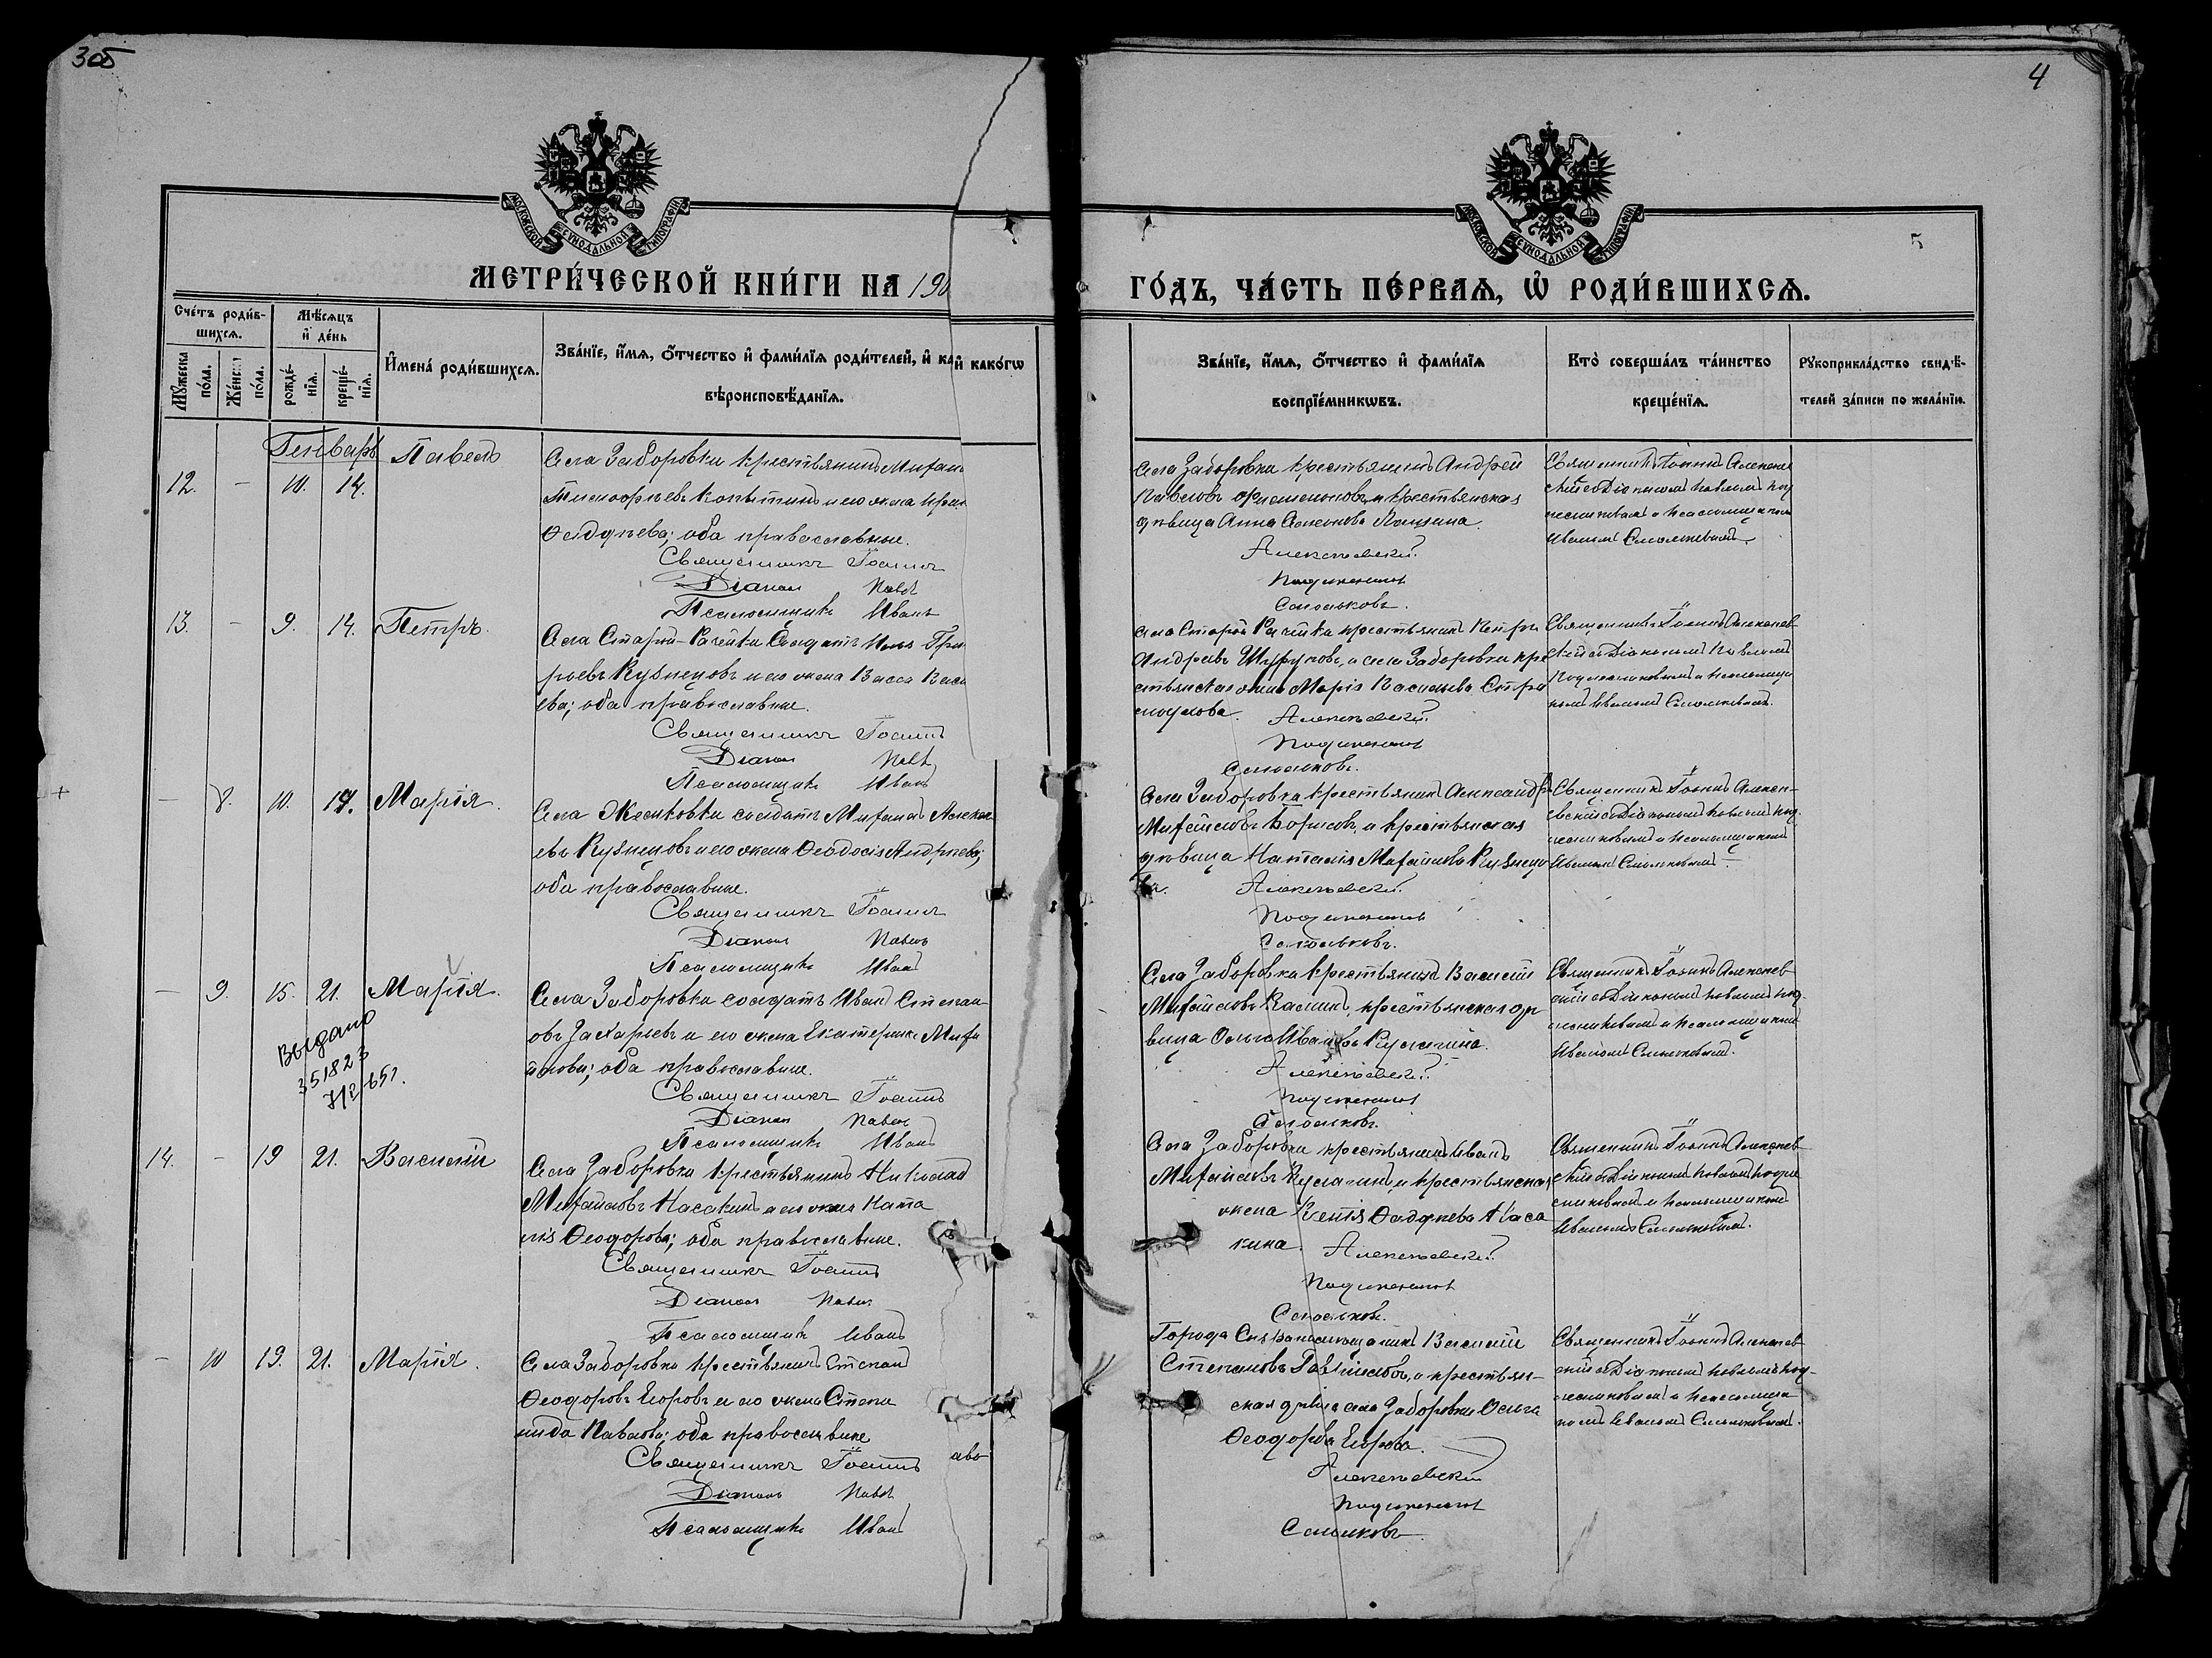 305
4
МОСКОВСКОЙ СѴНОДАЛЬНОЙ ТИПОГРАФІИ
МОСКОВСКОЙ СѴНОДАЛЬНОЙ ТИПОГРАФІИ
5
МЕТРИ́ЧЕСКОЙ КНИ́ГИ НА 190
ГО́ДЪ, ЧА́СТЬ ПЕ́РВАѦ, Ѡ҆ РОДИ́ВШИХСѦ.
Сче́тъ роди́в-
шихсѧ.
Мѣ́сѧцъ
и҆ де́нь
Мꙋ́жеска
по́ла.
Же́нска
по́ла.
рожде́-
нїѧ.
креще́-
нїѧ.
И҆мена̀ роди́вшихсѧ.
Зва́нїе, и҆́мѧ, ѻ҆́тчество и҆ фами́лїѧ роди́телей, и҆ ка
и҆ како́гѡ
вѣроисповѣ́данїѧ.
Зва́нїе, и҆́мѧ, ѻ҆́тчество и҆ фами́лїѧ
воспрїе́мникѡвъ.
Кто̀ соверша́лъ та́инство
креще́нїѧ.
Рꙋкоприкла́дство свидѣ́-
телей за́писи по жела́нїю.
Генварь
12. - 10. 14.
Павелъ
Села Заборовки крестьянинъ Михаи
Тимофеевъ Копытинъ и его жена Ири
Фаддѣева; оба православные.
Священникъ Іоаннъ
Діаконъ Павелъ
Псаломщикъ Иванъ
Села Заборовки крестьянинъ Андрей
Павловъ и крестьянская
дѣвица Анна
Алексѣевскій
Подлесновъ
Смольковъ.
Священникъ Іоаннъ Алексѣев
скій съ Діакономъ Павломъ Под
лесновымъ и псаломщикомъ
Иваномъ Смольковымъ.
13. - 9. 14. Петръ.
Села Старой-Рачейки Солдатъ Илья Григ
рьевъ Кузнецовъ и его жена Васса Васи
ева; оба православные.
Священникъ Іоаннъ
Діаконъ Павелъ
Псаломщикъ Иванъ
Села Старой Рачейки крестьянинъ Петръ
Андреевъ и села Заборовки кре
стьянская жена Марія Васильева
Алексѣевскій
Подлесновъ
Смольковъ.
Священникъ Іоаннъ Алексѣев
скій съ Діакономъ Павломъ
Подлесновымъ и псаломщи
комъ Иваномъ Смольковымъ.
- 8. 10. 14. Марія.
Села солдатъ Михаилъ Алексѣ
евъ Кузнецовъ и его жена Ѳеодосія Андреева;
оба православные.
Священникъ Іоаннъ
Діаконъ Павелъ
Псаломщикъ Иванъ
Села Заборовки крестьянинъ Александръ
Михайловъ Борисовъ, и крестьянская
дѣвица Наталія Михайлова Кузнецо
ва.
Алексѣевскій
Подлесновъ
Смольковъ.
Священникъ Іоаннъ Алексѣ-
евскій съ Діакономъ Павломъ Под-
лесновымъ и псаломщикомъ
Иваномъ Смольковымъ.
- 9. 15. 21. Марія.
Села Заборовки солдатъ Иванъ Степан-
овъ Захарьевъ и его жена Екатерина Миха
йлова; оба православные.
Священникъ Іоаннъ
Діаконъ Павелъ
Псаломщикъ Иванъ
Выдано
351823
№ 651.
Села Заборовки крестьянинъ Василій
Михайловъ крестьянская дѣ
вица Ольга Иванова
Алексѣевскій
Подлесновъ
Смольковъ.
Священникъ Іоаннъ Алексѣев
скій съ Діакономъ Павломъ Под-
лесновымъ и псаломщикомъ
Иваномъ Смольковымъ.
14. - 19 21. Василій
Села Заборовки крестьянинъ Николай
Михайловъ Насакинъ и его жена Ната
лія Ѳеодорова; оба православные.
Священникъ Іоаннъ
Діаконъ Павелъ
Псаломщикъ Иванъ
Села Заборовки крестьянинъ Иванъ
Михайловъ и крестьянская
жена Ксенія Фаддѣева Наса
кина.
Алексѣевскій
Подлесновъ
Смольковъ.
Священникъ Іоаннъ Алексѣев
скій съ Діакономъ Павломъ Подле
сновымъ и псаломщикомъ
Иваномъ Смольковымъ.
- 10 19. 21. Марія.
Села Заборовки крестьянинъ Степанъ
Ѳеодоровъ Егоровъ и его жена Степа
нида Павлова; оба православные
Священникъ Іоаннъ
Діаконъ Павелъ
Псаломщикъ Иванъ
аво
Города Василій
Степановъ и крестьян-
ская дѣвица села Заборовки Ольга
Ѳеодорова Егорова.
Алексѣевскій
Подлесновъ
Смольковъ
Священникъ Іоаннъ Алексѣев
скій съ Діакономъ Павломъ Под-
лесновымъ и псаломщи
комъ Иваномъ Смольковымъ.